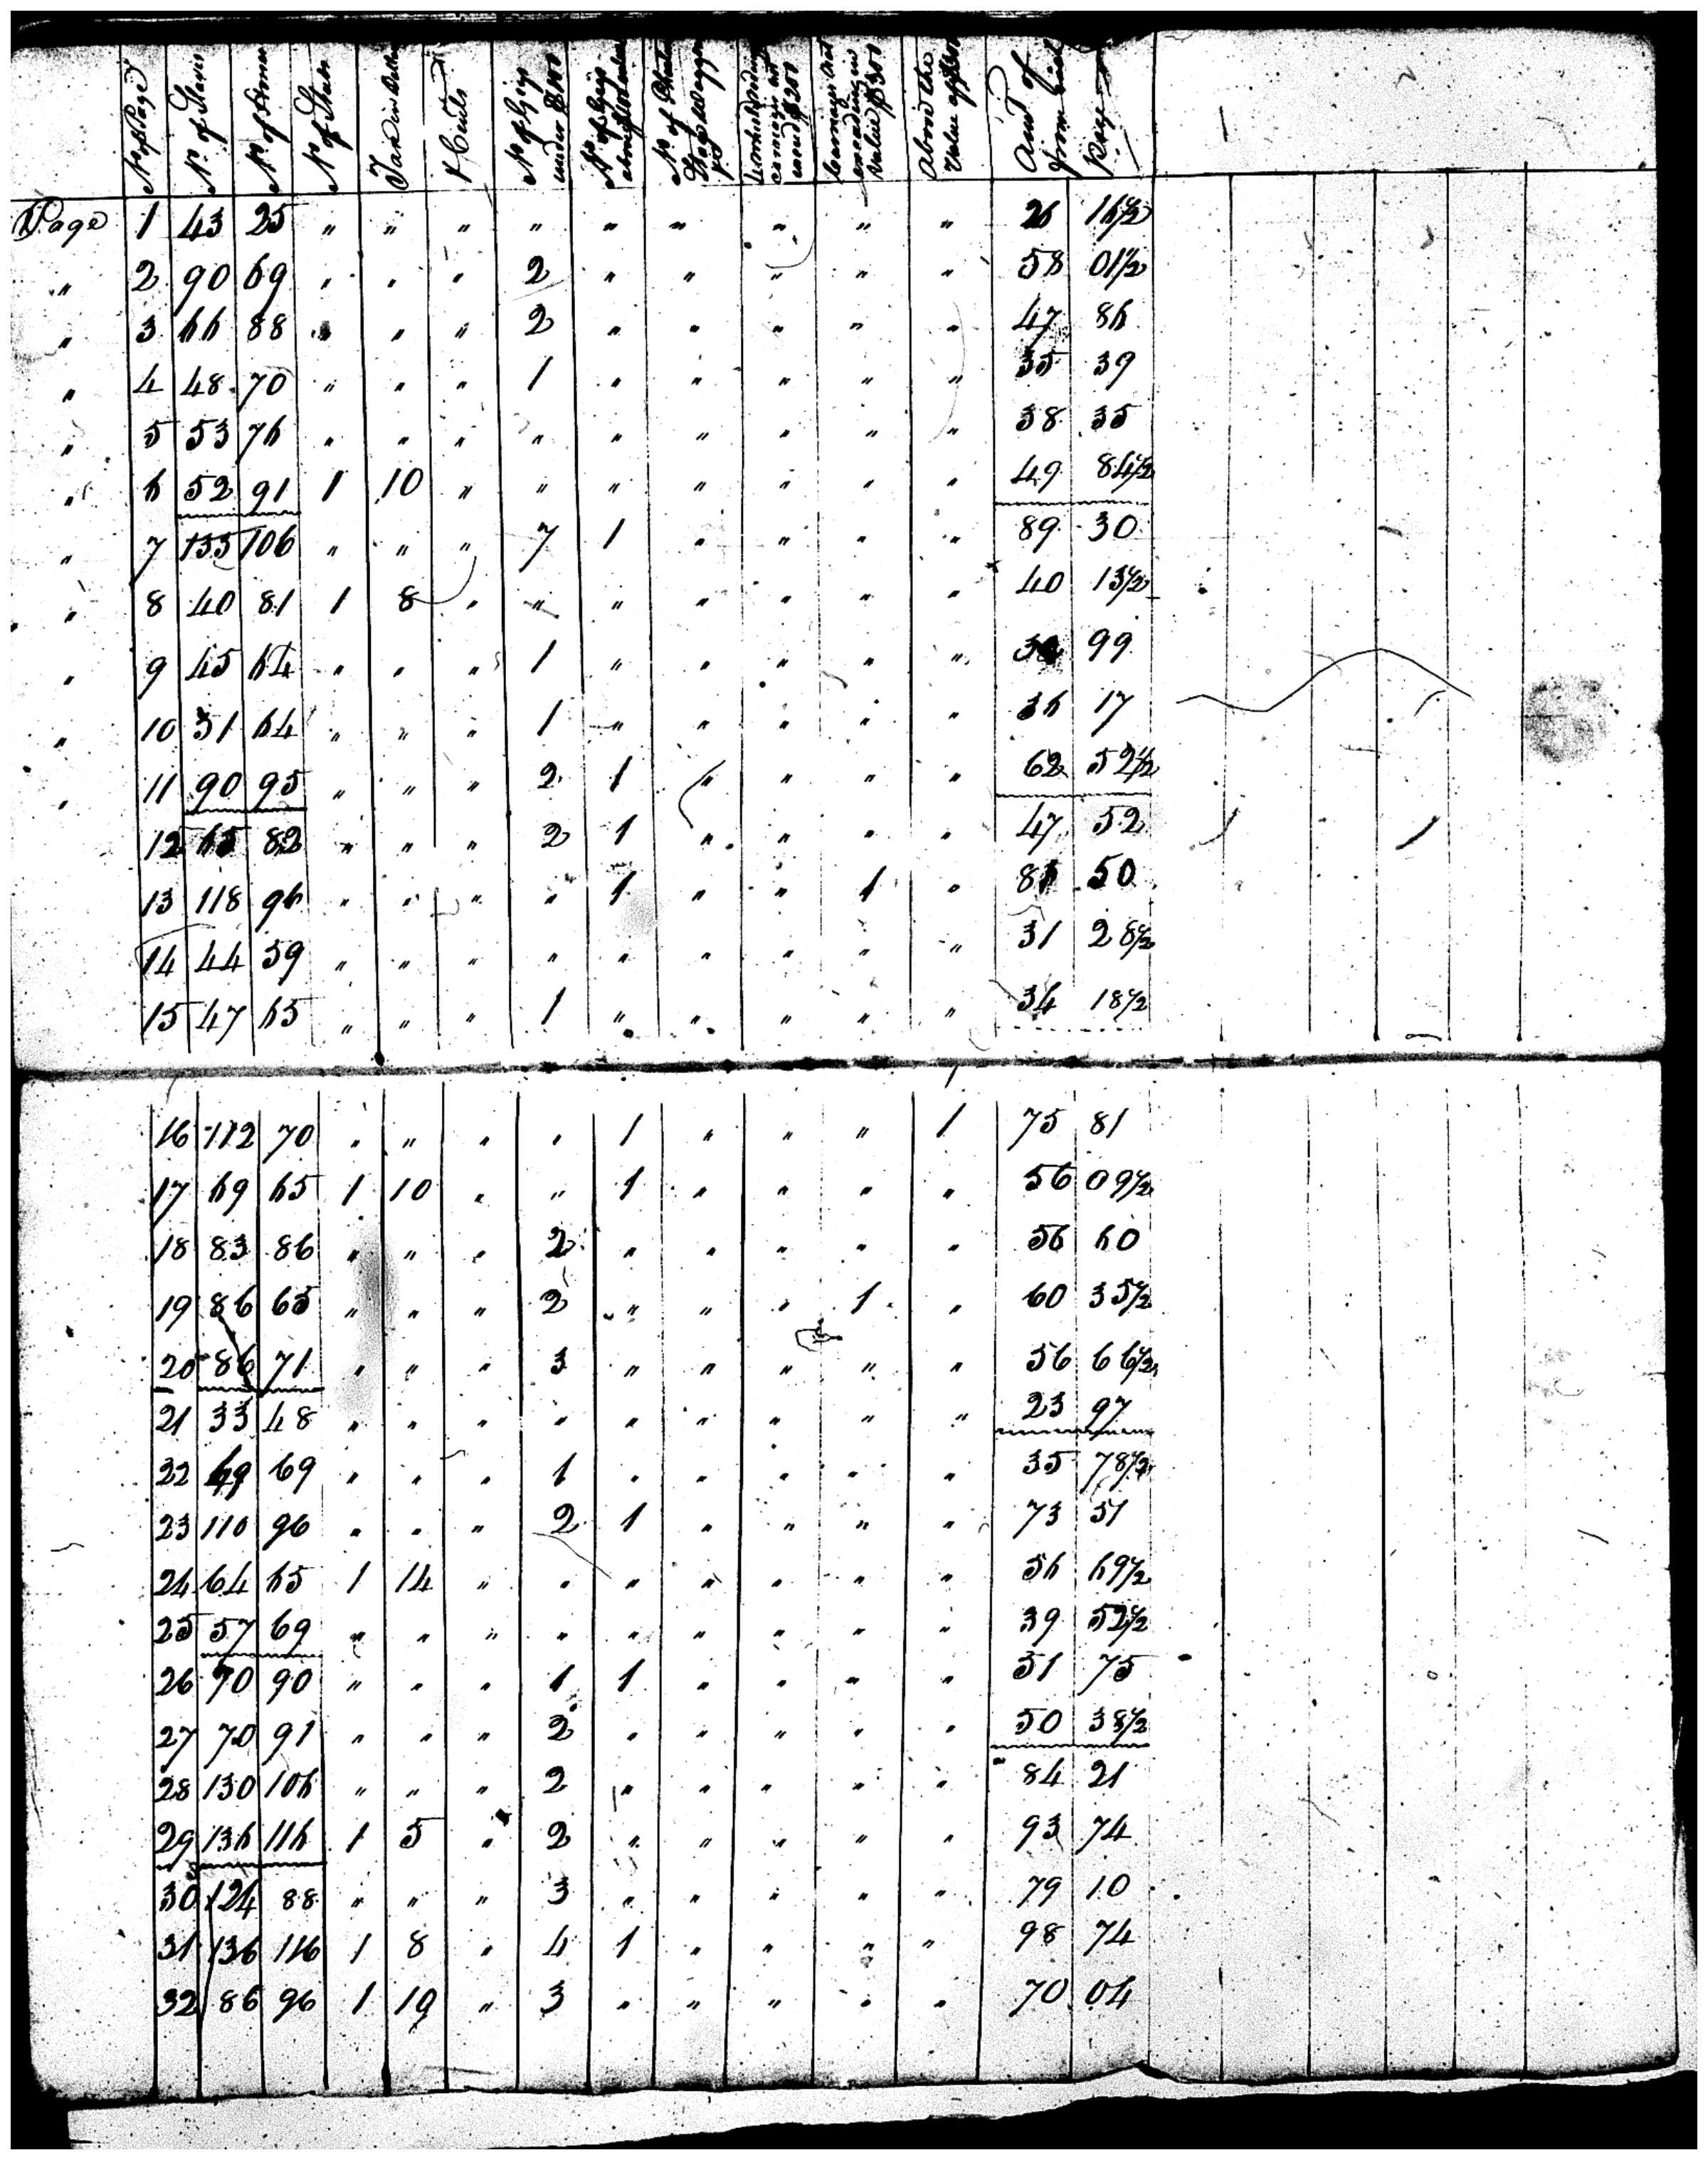 No of Page | No of Slaves | No of Horses | No of Studs | Tax in Dolls | & Cents | No of Gigs under $100 | No of Gigs above | No of | carriages not exceedg $200 | Carriages not exceeding in value $300 | Above the value of $300 | Amt of from each | Page
Page 1 43 25 " " " " " " " " " 26 16½
" 2 90 69 " " " 2 " " " " " 58 01½
" 3 66 88 " " " 2 " " " " " 47 86
" 4 48 70 " " " 1 " " " " " 35 39
" 5 53 76 " " " " " " " " " 38 35
" 6 52 91 1 10 " " " " " " " 49 84½
" 7 133 106 " " " 7 1 " " " " 89 30
" 8 40 81 1 8 " " " " " " " 40 13½
" 9 45 64 " " " 1 " " " " " 99
" 10 51 64 " " " 1 " " " " " 36 17
" 11 90 95 " " " 2 1 " " " " 62 52½
12 65 82 " " " 2 1 " " " " 47 52
13 118 96 " " " " 1 " " 1 " 50
14 44 59 " " " " " " " " " 31 28½
15 47 65 " " " 1 " " " " " 34 18½
16 112 70 " " " " 1 " " " 1 75 81
17 69 65 1 10 " " 1 " " " " 56 09½
18 83 86 " " " 2 " " " " " 56 60
19 86 65 " " " 2 " " " 1 " 60 35½
20 86 71 " " " 3 " " " " " 56 66½
21 33 48 " " " " " " " " " 23 97
22 49 69 " " " 1 " " " " " 35 78½
23 110 96 " " " 2 1 " " " " 73 51
24 64 65 1 14 " " " " " " " 56 69½
25 57 69 " " " " " " " " " 39 52½
26 70 90 " " " 1 1 " " " " 51 75
27 70 91 " " " 2 " " " " " 50 38½
28 130 106 " " " 2 " " " " " 84 21
29 136 116 1 5 " 2 " " " " " 93 74
30 124 88 " " " 3 " " " " " 79 10
31 136 116 1 8 " 4 1 " " " " 98 74
32 86 96 1 19 " 3 " " " " " 70 04